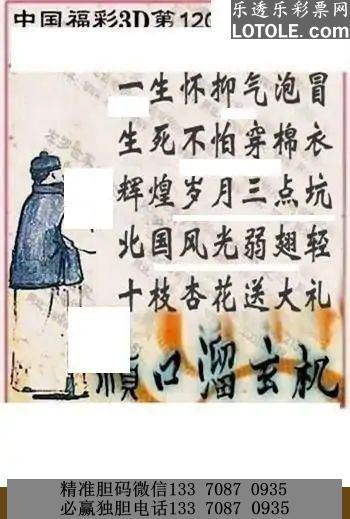 中国福彩3D第120
乐透乐彩票网
LOTOLE.com
一生怀抑气泡冒
生死不怕穿棉衣
辉煌岁月三点坑
北国风光弱翅轻
十枝杏花送大礼
顺口溜玄机
精准胆码微信133 7087 0935
必赢独胆电话133 7087 0935